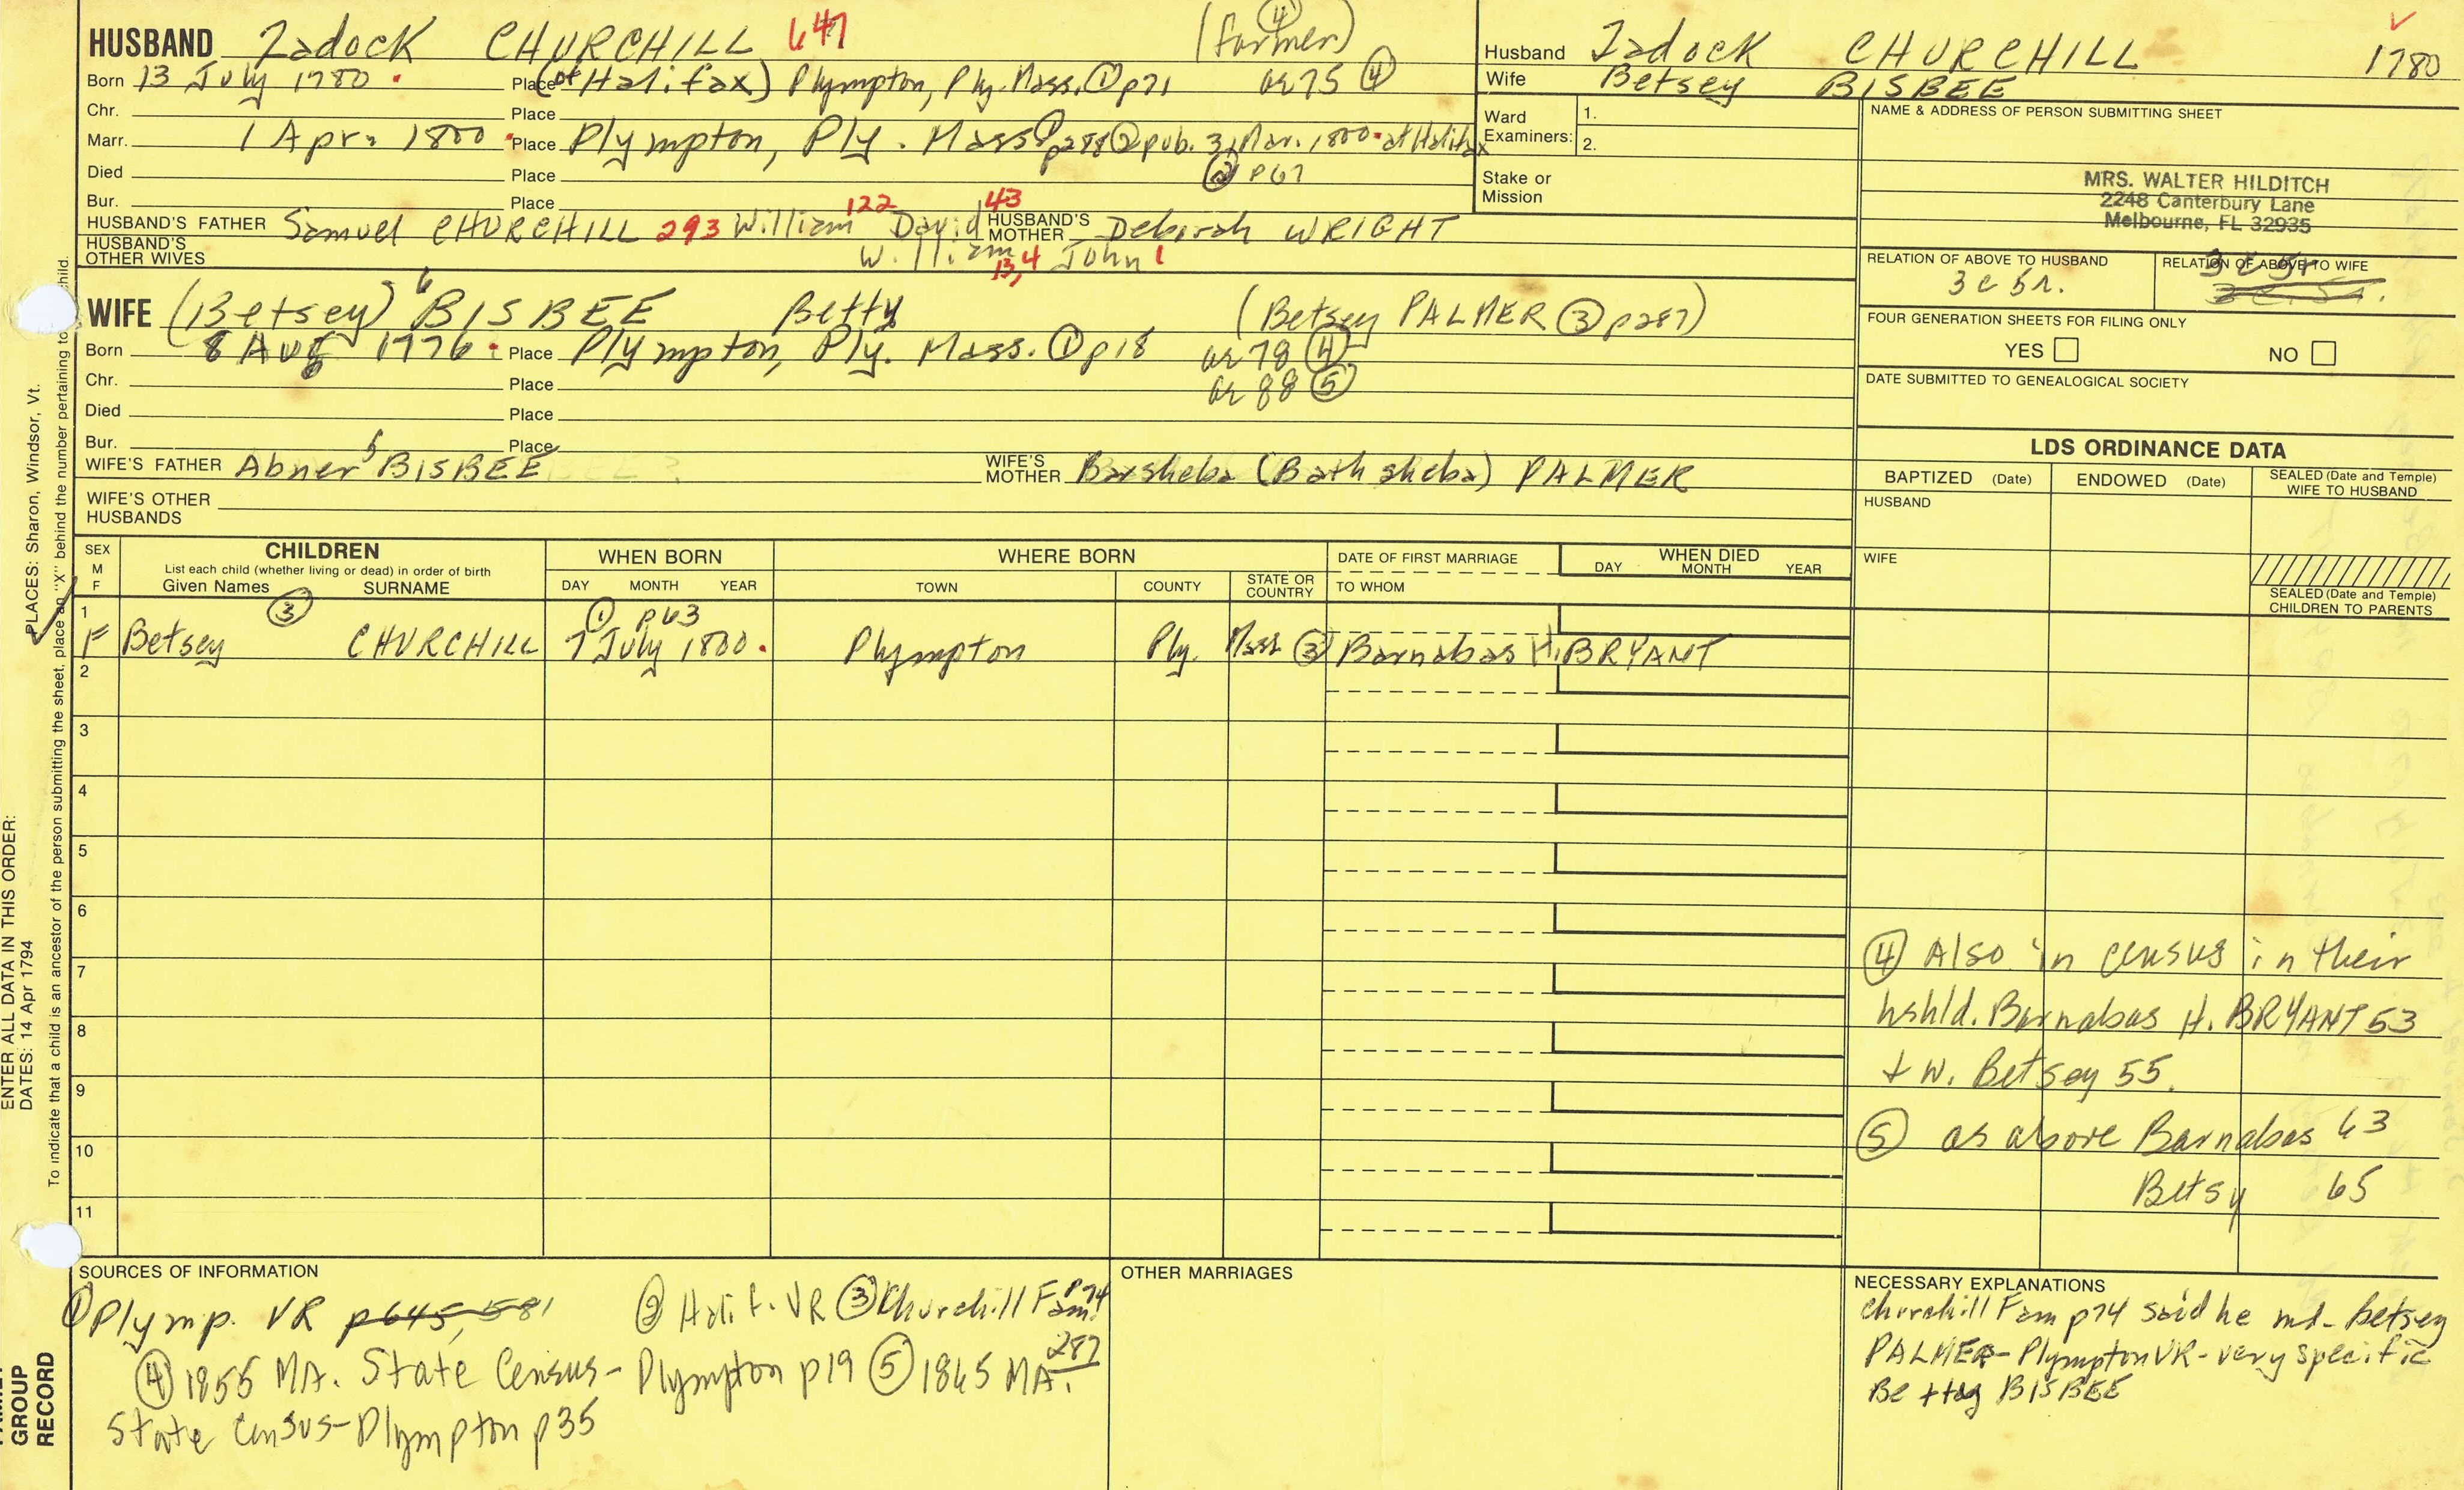 HUSBAND Zadock CHURCHILL 647 (farmer) ④
Born 13 July 1780. Place (of Halifax) Plympton, Ply. Mass. ① p71 ae 75 ④
Chr. Place
Marr. 1 Apr. 1800 Place Plympton, Ply. Mass ① p288 ② pub. 3, Mar. 1800 at Halifax
Died Place ② p67
Bur. Place
HUSBAND'S FATHER Samuel CHURCHILL 293 William 122 David 43 HUSBAND'S MOTHER Deborah WRIGHT
HUSBAND'S OTHER WIVES William 13,4 John 1
WIFE (Betsey) 6 BISBEE Betty (Betsey PALMER ③ p287)
Born 8 Aug 1776. Place Plympton, Ply. Mass. ① p18 ae 78 ④
Chr. Place ae 88 ⑤
Died Place
Bur. Place
WIFE'S FATHER Abner 5 BISBEE WIFE'S MOTHER Barsheba (Bathsheba) PALMER
WIFE'S OTHER HUSBANDS
Husband Zadock CHURCHILL 1780
Wife Betsey BISBEE
Ward Examiners: 1.
2.
Stake or Mission
NAME & ADDRESS OF PERSON SUBMITTING SHEET
MRS. WALTER HILDITCH
2248 Canterbury Lane
Melbourne, FL 32935
RELATION OF ABOVE TO HUSBAND RELATION OF ABOVE TO WIFE
3c 5r. 3c 5r
3c. 5r.
FOUR GENERATION SHEETS FOR FILING ONLY
YES NO
DATE SUBMITTED TO GENEALOGICAL SOCIETY
LDS ORDINANCE DATA
BAPTIZED (Date) ENDOWED (Date) SEALED (Date and Temple) WIFE TO HUSBAND
HUSBAND
WIFE
SEALED (Date and Temple) CHILDREN TO PARENTS
SEX M F
CHILDREN
List each child (whether living or dead) in order of birth
Given Names SURNAME
WHEN BORN
DAY MONTH YEAR
WHERE BORN
TOWN COUNTY STATE OR COUNTRY
DATE OF FIRST MARRIAGE
TO WHOM
WHEN DIED
DAY MONTH YEAR
1 ③ ① p63
F Betsey CHURCHILL 7 July 1800. Plympton Ply. Mass ③ Barnabas H. BRYANT
2
3
4
5
6
7
8
9
10
11
④ Also in census in their
hshld. Barnabas H. BRYANT 53
+ w. Betsey 55.
⑤ as above Barnabas 63
Betsy 65
SOURCES OF INFORMATION
① Plymp. VR p645, 581 ② Halif. VR ③ Churchill Fam. p74
287
④ 1855 MA. State Census- Plympton p19 ⑤ 1865 MA.
State Census-Plympton p35
OTHER MARRIAGES
NECESSARY EXPLANATIONS
Churchill Fam p74 said he md. Betsey
PALMER-Plympton VR-very specific
Bettey BISBEE
ENTER ALL DATA IN THIS ORDER:
DATES: 14 Apr 1794
PLACES: Sharon, Windsor, Vt.
To indicate that a child is an ancestor of the person submitting the sheet, place an "X" behind the number pertaining to child.
GROUP
RECORD